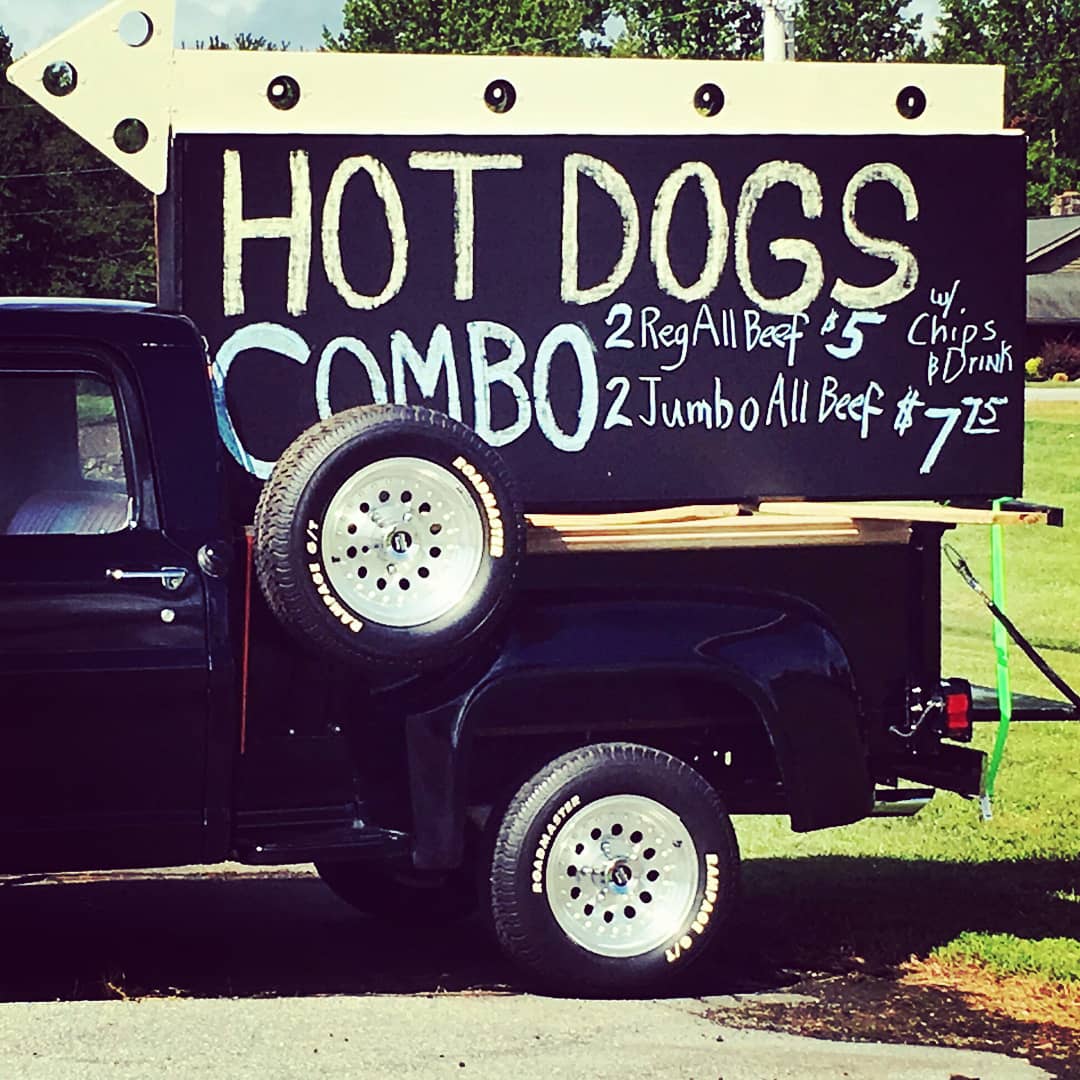 HOT DOGS
COMBO
2 Reg All Beef $5
2 Jumbo All Beef $7 75
w/
Chips
& Drink
ROADMASTER
RAMPAGE G/T
ROADMASTER
RAMPAGE G/T